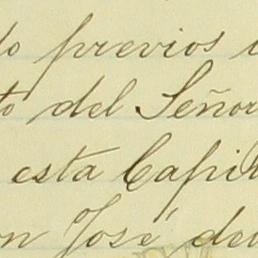 do previos
to del Señor
esta Capi
on José del